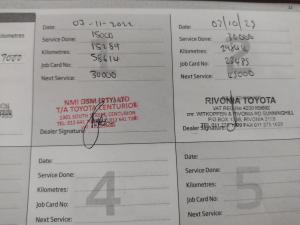 Date: 03-11-2022
Service Done: 15000
Kilometres: 15289
Job Card No: 58614
Next Service: 30000
NMI DSM (PTY) LTD
T/A TOYOTA CENTURION
Dealer Signature:
Date: 07/10/23
Service Done: 30000
Kilometres:
Job Card No: 28485
Next Service: 45000
RIVONIA TOYOTA
cnr. WITKOPPEN & RIVONIA RD SUNNINGHILL
Dealer Signature:
Date:
Service Done:
Kilometres:
Job Card No:
Next Service:
4
Date:
Service Done:
Kilometres:
Job Card No:
Next Service:
5